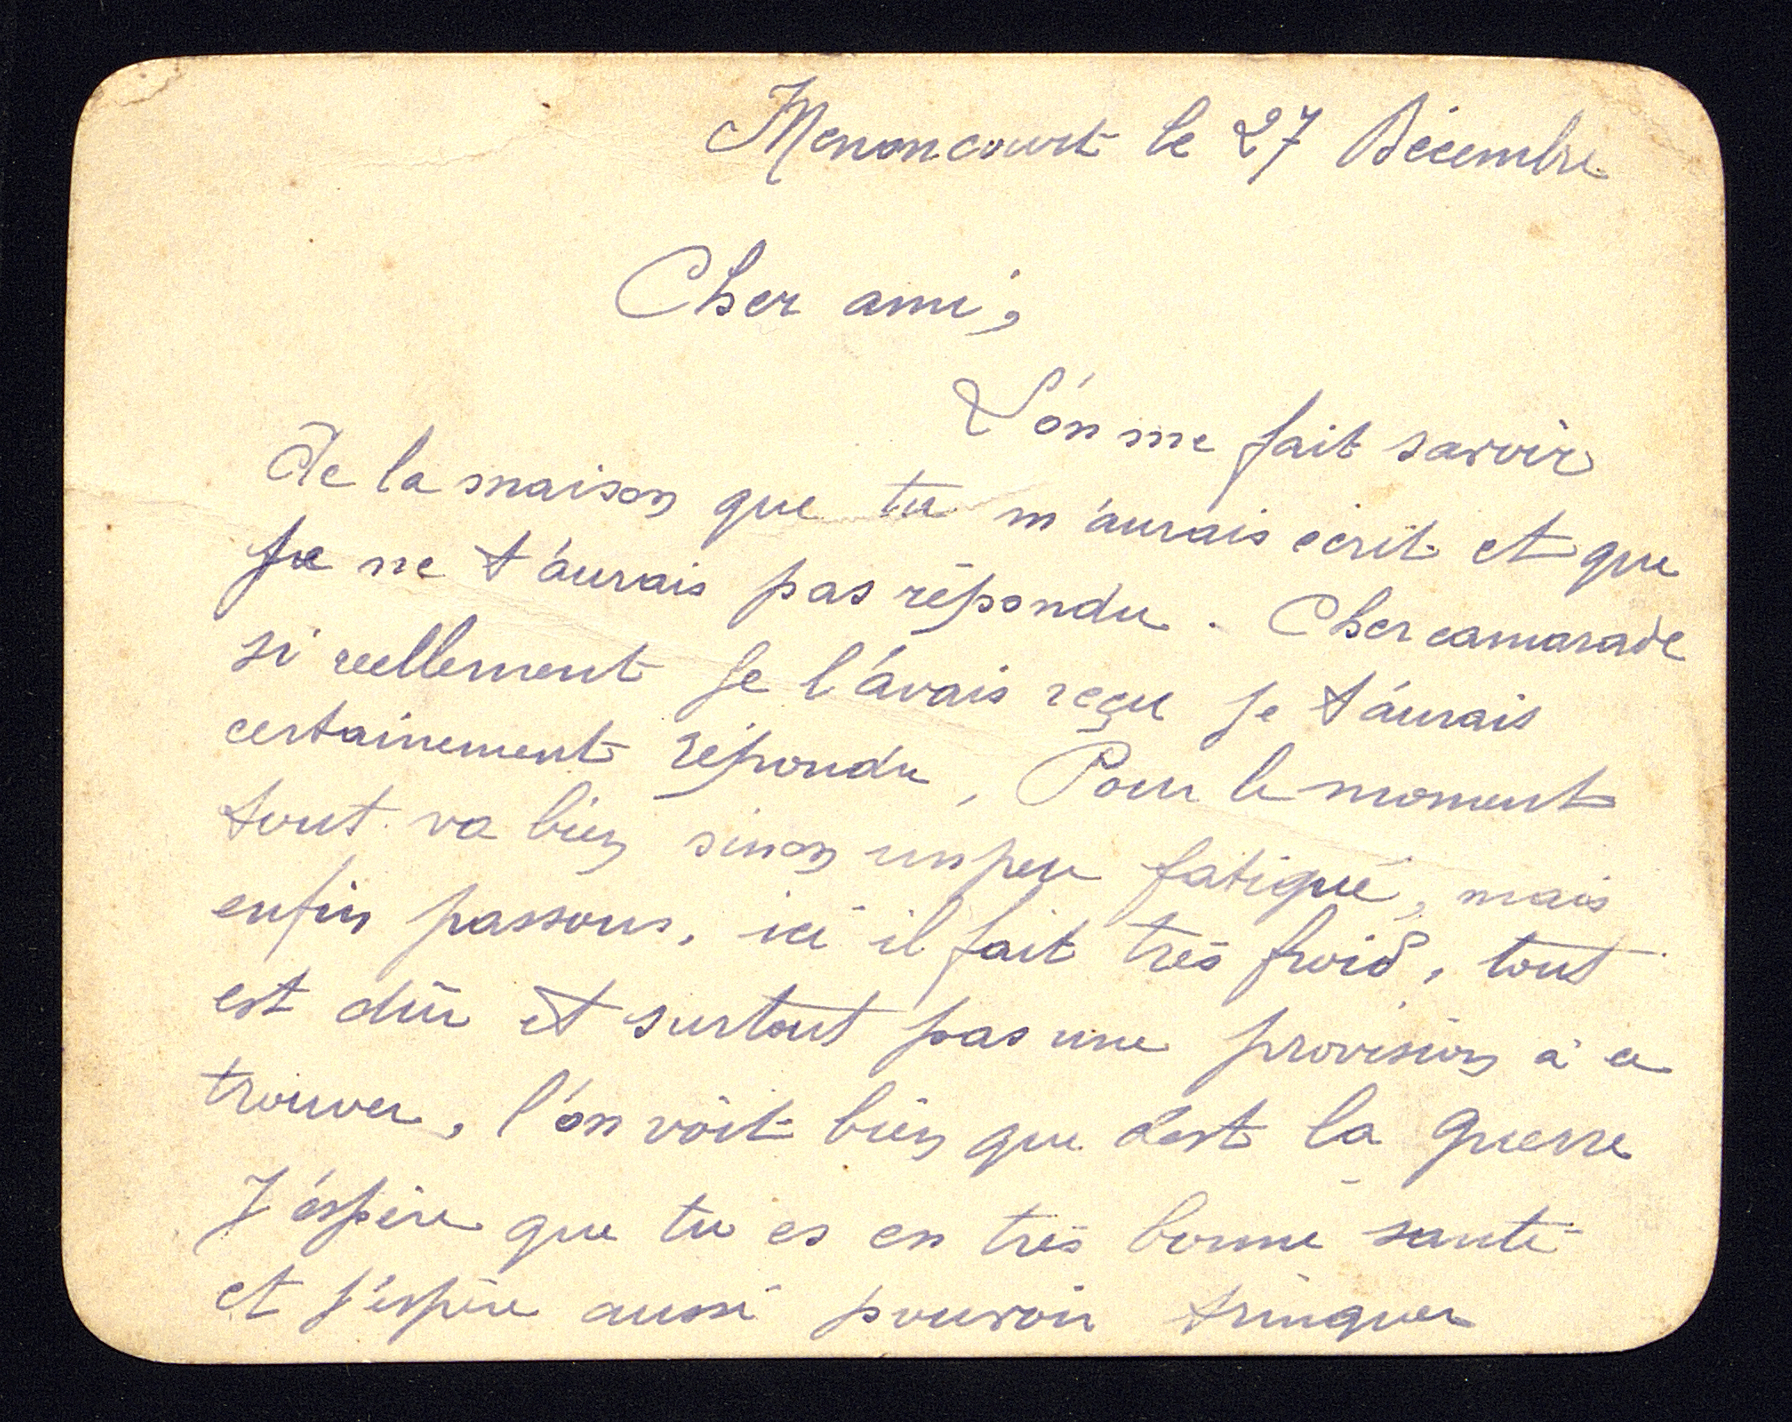 Menoncourt le 27 Décembre
Cher ami,
L'on me fait savoir
de la maison que tu m'aurais écrit et que
je ne t'aurais pas répondu. Cher camarade
si reellement je l'avais reçu je t'aurais
certainement répondu, Pour le moment
tout va bien sinon un peu fatigué, mais
enfin passons, ici il fait très froid, tout
est dûr et surtout pas une provision à ce
trouver, l'on voit bien que c'est la guerre
J'éspère que tu es en très bonne santé
et j'éspère aussi pouvoir trinquer